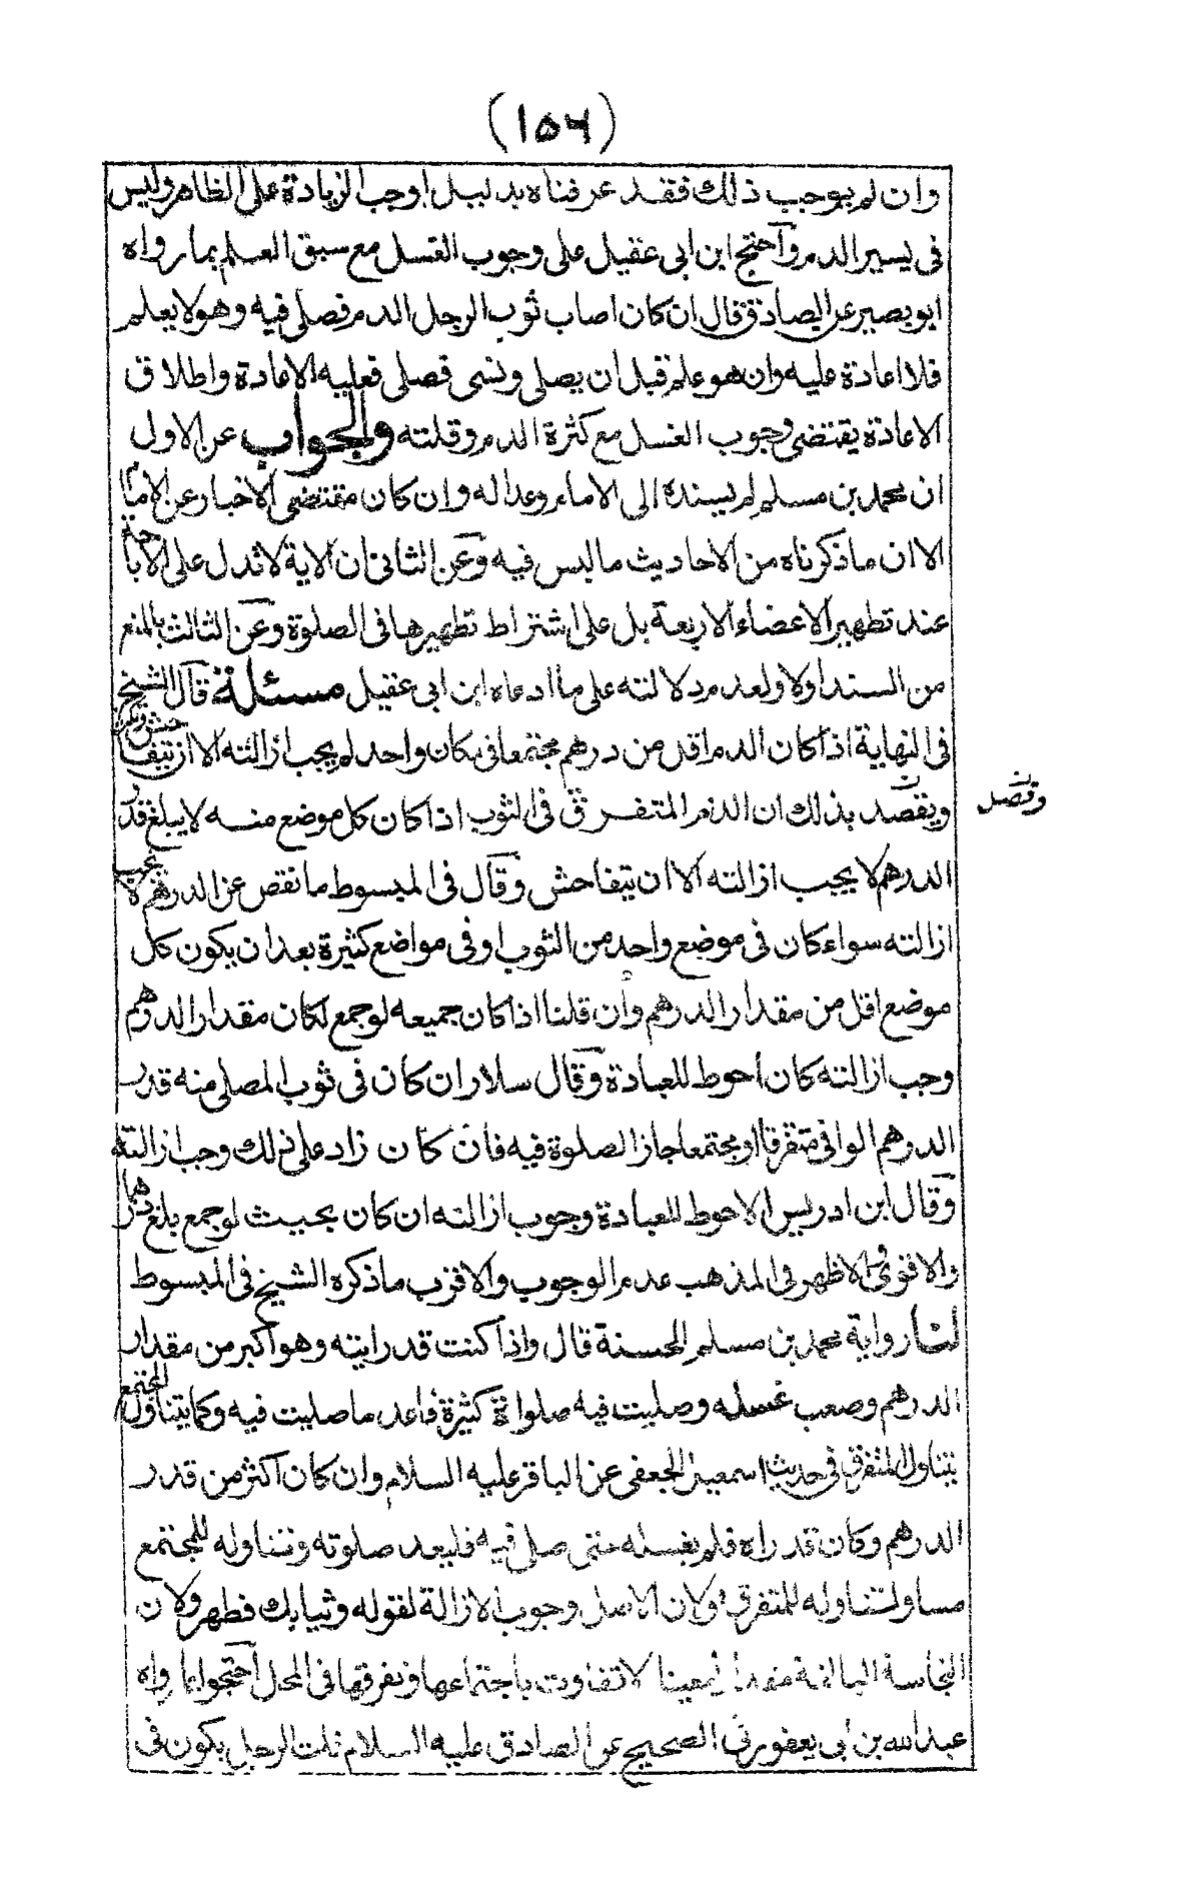 (١٥٦)
وان لم يوجب ذلك فقد عرفناه بدليل اوجب الزيادة على الظاهر وليس
فى يسير الدم واحتج ابن ابى عقيل على وجوب الغسل مع سبق العلم بما رواه
ابو بصير عن الصادق ع قال ان كان اصاب ثوب الرجل الدم فصلى فيه وهو لا يعلم
فلا اعادة عليه وان هو علم قبل ان يصلى ونسى فصلى فعليه الاعادة واطلاق
الاعادة يقتضى وجوب الغسل مع كثرة الدم وقلته والجواب عن الاول
ان محمد بن مسلم لم يسنده الى الامام وعدالته وان كان مقتضى الاخبار عن الامام
الا ان ما ذكرناه من الاحاديث ما ليس فيه وعن الثانى ان الاية لا تدل على الاباحة
عند تطهير الاعضاء الاربعة بل على اشتراط تطهيرها فى الصلوة وعن الثالث بالمنع
من السند اولا ولعدم دلالته على ما ادعاه ابن ابى عقيل مسئلة قال الشيخ
فى النهاية اذا كان الدم اقل من درهم مجتمعا فى مكان واحد لم يجب ازالته الا ان يتفاحش ويكثر
ويقصد بذلك ان الدم المتفرق فى الثوب اذا كان كل موضع منه لا يبلغ قدر
وقصد
الدرهم لا يجب ازالته الا ان يتفاحش وقال فى المبسوط ما نقص عن الدرهم لا يجب
ازالته سواء كان فى موضع واحد من الثوب او فى مواضع كثيرة بعد ان يكون كل
موضع اقل من مقدار الدرهم وان قلنا اذا كان جميعه لو جمع لكان مقدار الدرهم
وجب ازالته كان احوط للعبادة وقال سلار ان كان فى ثوب المصلى منه قدر
الدرهم الوافى متفرقا او مجتمعا جاز الصلوة فيه فان كان زاد على ذلك وجب ازالته
وقال ابن ادريس الاحوط للعبادة وجوب ازالته ان كان بحيث لو جمع بلغ درهما
والاقوى والاظهر فى المذهب عدم الوجوب والاقرب ما ذكره الشيخ فى المبسوط
لنا رواية محمد بن مسلم الحسنة قال واذا كنت قد رايته وهو اكبر من مقدار
الدرهم وصعب غسله وصليت فيه صلواة كثيرة فاعد ما صليت فيه وكما يتناول المجتمع
يتناول المتفرق فى حديث اسمعيل الجعفى عن الباقر عليه السلام وان كان اكثر من قدر
الدرهم وكان قد راه فلم يغسله حتى صلى فيه فليعد صلوته وتناوله للمجتمع
مساو لتناوله للمتفرق ولان الاصل وجوب الازالة لقوله وثيابك فطهر ولان
النجاسة البالغة مقدارا معينا لا تفاوت باجتماعها وتفرقها فى المحل احتجوا بما رواه
عبد الله بن ابى يعفور فى الصحيح عن الصادق عليه السلام قلت الرجل يكون فى